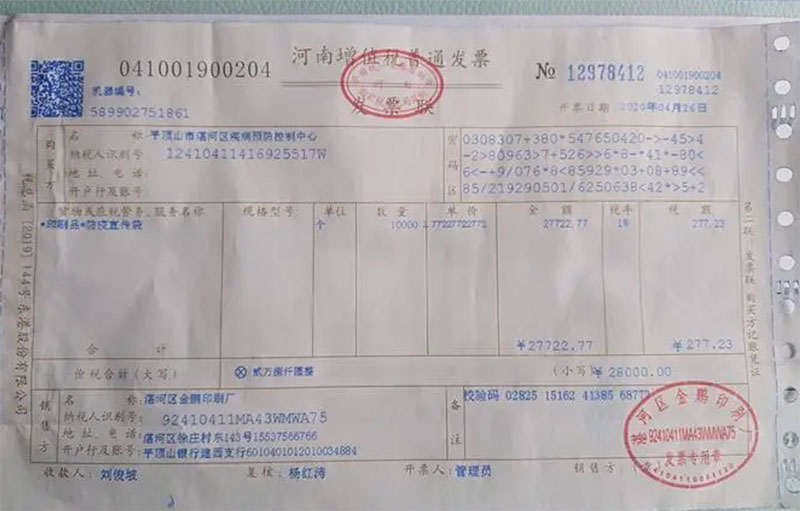 041001900204
河南增值税普通发票
发票联
№ 12978412
041001900204
12978412
机器编号:
589902751861
开票日期: 2020年04月26日
购买方
名 称: 平顶山市湛河区疾病预防控制中心
纳税人识别号: 12410411416925517W
地 址、电 话:
开户行及账号:
密码区
0308307+380*547650420->-45>4
-2>80963>7+526>>6*8-*41*-80<
6<-+9/076*8<85929*03+08+89<<
85/219290501/6250638<42*>5+2
货物或应税劳务、服务名称 规格型号 单位 数 量 单 价 金 额 税率 税 额
*印刷品*防疫宣传袋 个 10000 2.77227722772 27722.77 1% 277.23
合 计 ¥27722.77 ¥277.23
价税合计(大写) ⊗ 贰万捌仟圆整 (小写) ¥28000.00
销售方
名 称: 湛河区金鹏印刷厂
纳税人识别号: 92410411MA43WMWA75
地 址、电 话: 湛河区徐庄村东143号15537566766
开户行及账号: 平顶山银行建西支行6010401012010034884
备注
校验码 02825 15162 41385 6877
收款人: 刘俊坡 复核: 杨红涛 开票人: 管理员 销售方:
河区金鹏印刷厂
92410411MA43WMWA75
发票专用章
第二联:发票联 购买方记账凭证
[2019]144号东港股份有限公司